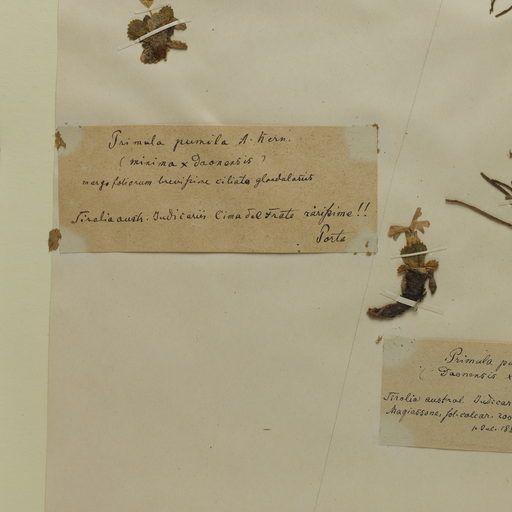 Primula pumila A. Kern.
(minima x Daonensis)
margo foliorum brevissime ciliato glandulosus
Tirolia austr. Judicariis Cima del Frate rarissime!!
Porta
Primula pu
(Daonensis x
Tirolia austral. Judicar
Magiassone, sol. calcar. 200